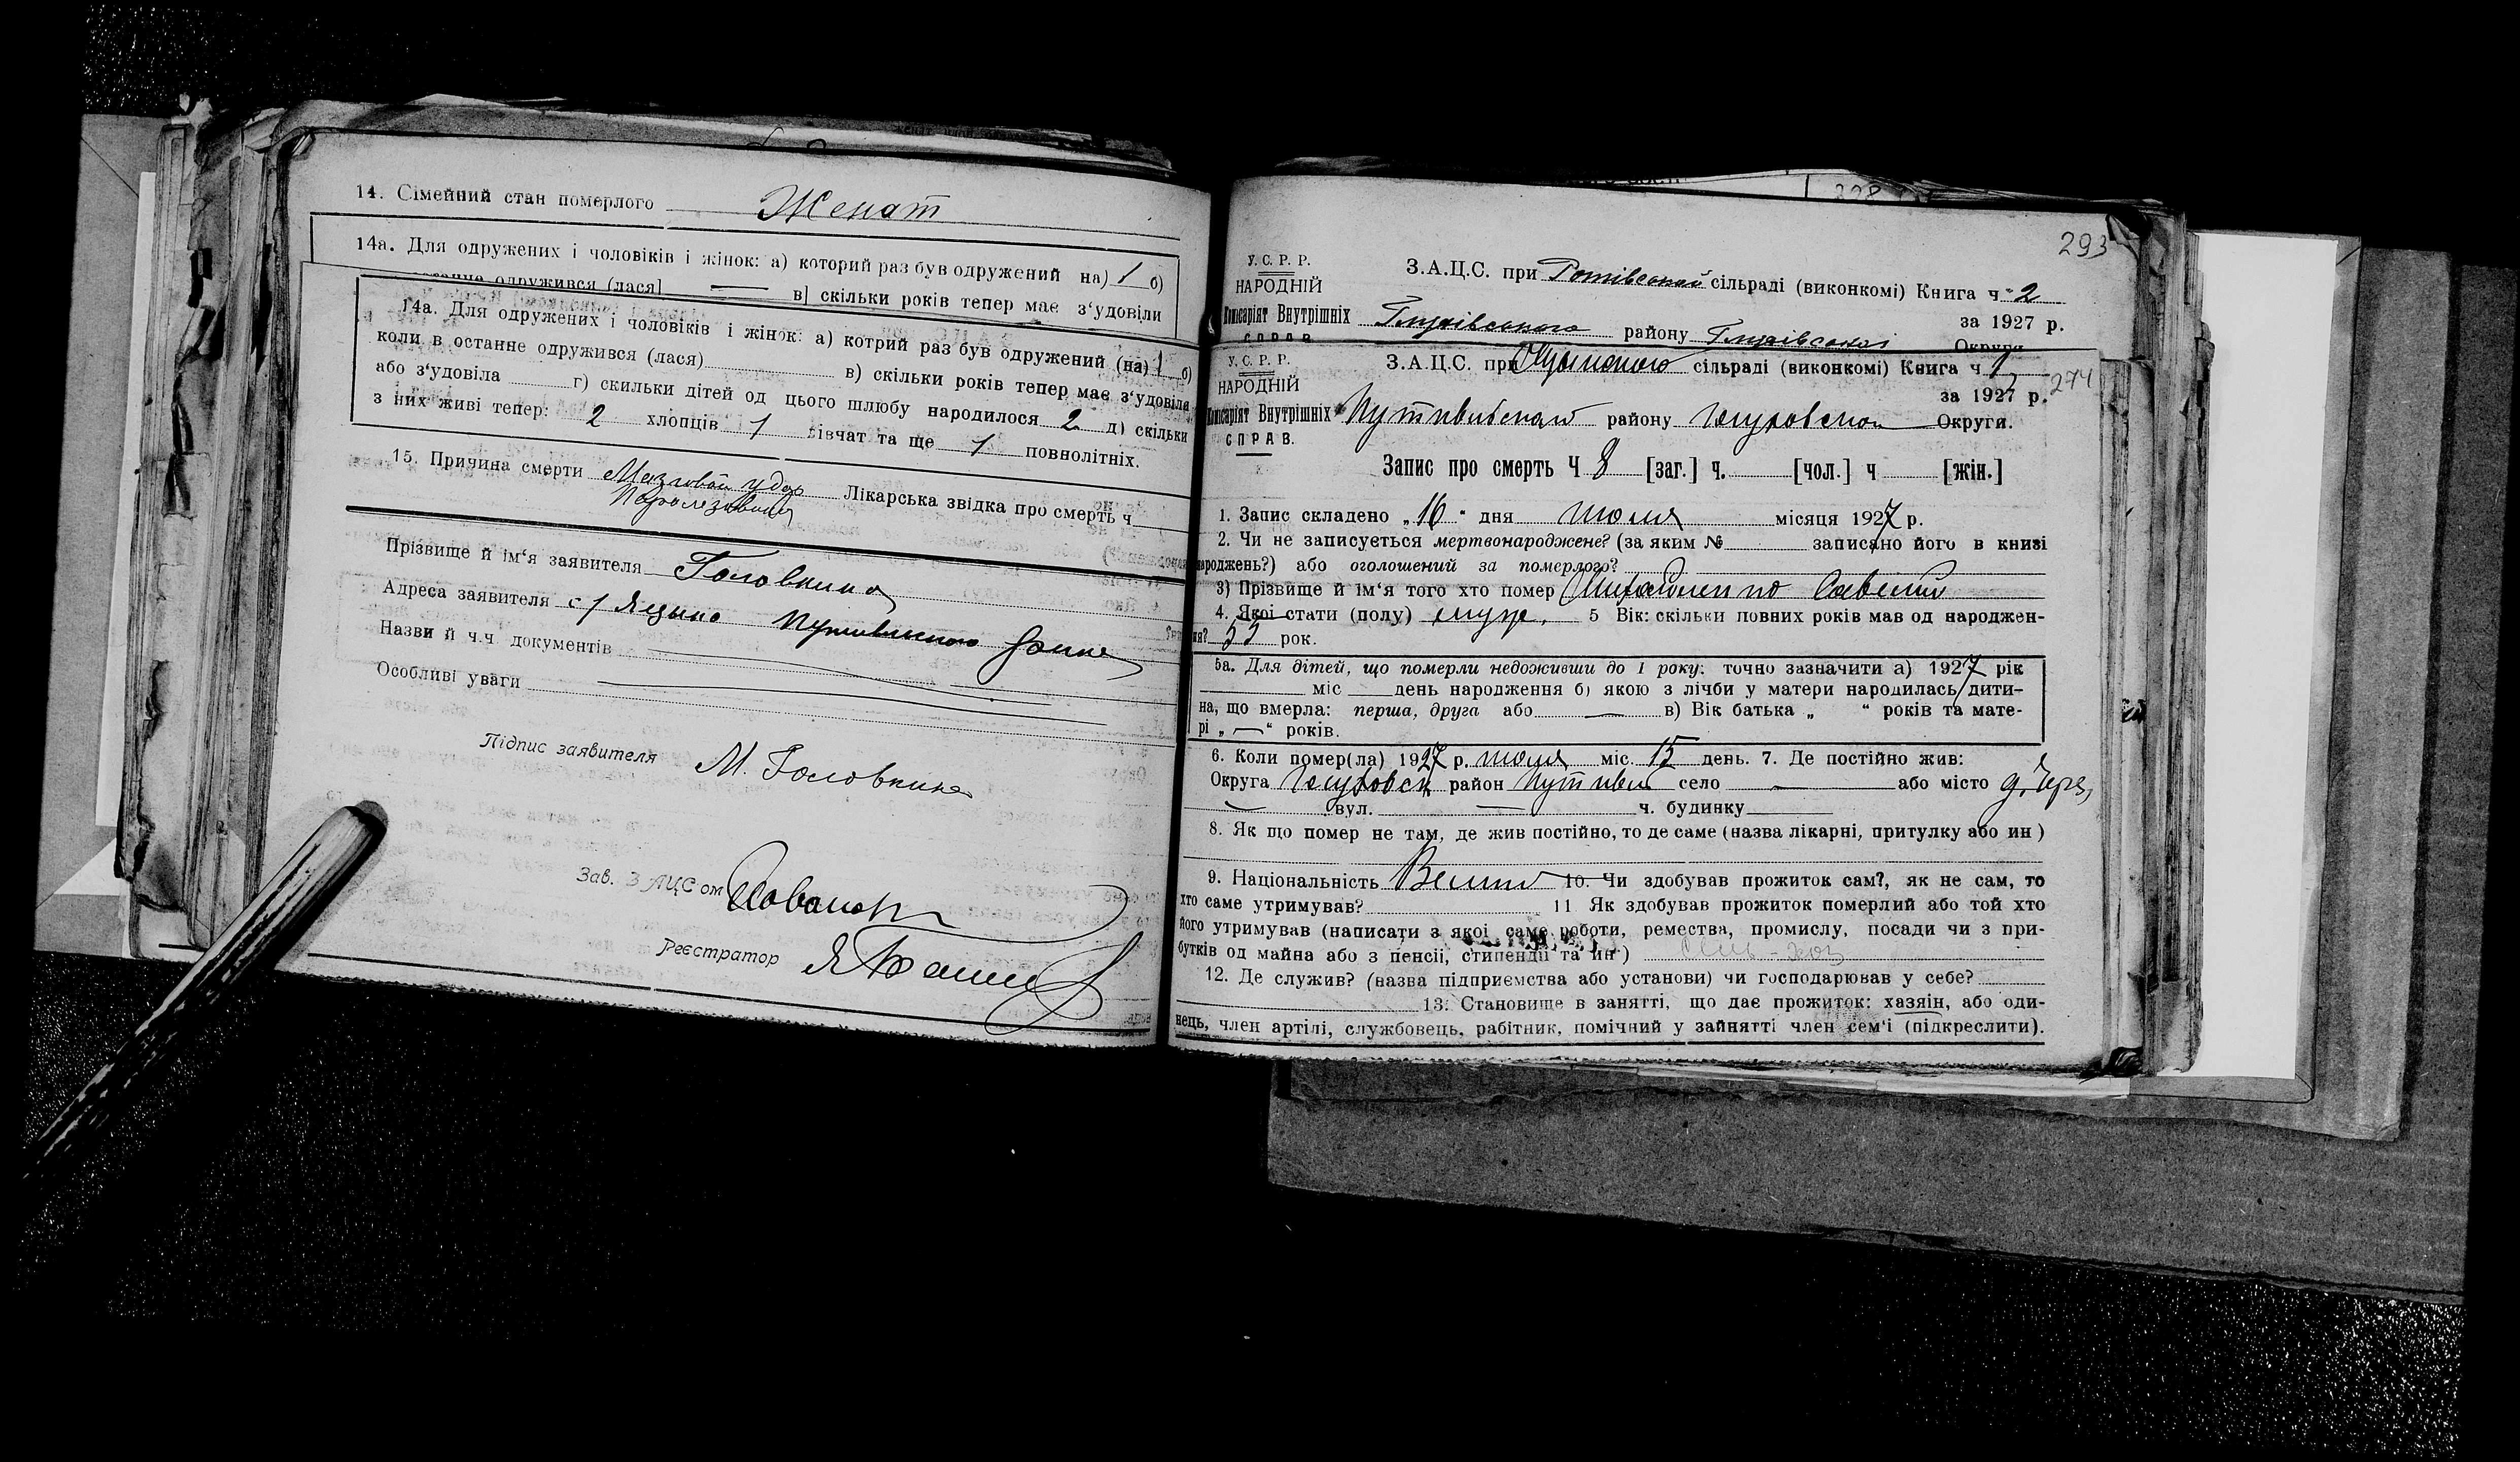 14. Сімейний стан померлого Женат
14а. Для одружених і чоловіків і жінок: а) которий раз був одружений на) 1 б)
одружився (лася] — в] скільки років тепер має з‘удовіли
14а. Для одружених і чоловіків і жінок: а) котрий раз був одружений (на) 1 б)
коли в останне одружився (лася) в) скільки років тепер має з‘удовіла
або з‘удовіла г) скильки дітей од цього шлюбу народилося 2 д) скільки
з них живі тепер: 2 хлопців 1 дівчат та ще 1 повнолітніх.
15. Причина смерти Мозговой удар Лікарська звідка про смерть ч
Прізвище й ім‘я заявителя Головкина
Адреса заявителя с/ Яцыно Путивльского
Назви й ч.ч документів
Особливі уваги
Підпис заявителя М. Головкина
Зав. ЗАЦСом
Реєстратор
328
293
У. С. Р. Р.
НАРОДНІЙ
Комісаріят Внутрішніх
СПРАВ
З.А.Ц.С. при сільраді (виконкомі) Книга ч 2
за 1927 р.
району Округи
У. С. Р. Р.
НАРОДНІЙ
Комісаріят Внутрішніх
СПРАВ.
З.А.Ц.С. при сільраді (виконкомі) Книга ч 1
за 1927 р. 274
району Глуховской Округи.
Запис про смерть Ч 8 [заг.] ч. [чол.] ч [жін.]
1. Запис складено „16“ дня июля місяця 1927 р.
2. Чи не записується мертвонароджене? (за яким № записано його в книзі
народжень?) або оголошений за померлого?
3) Прізвище й ім‘я того хто помер Савелий
4. Якої стати (полу) муж. 5 Вік: скільки повних років мав од народжен-
ня? 53 рок.
5а. Для дітей, що померли недоживши до 1 року: точно зазначити а) 1927 рік
міс день народження б) якою з лічби у матери народилась дити-
на, що вмерла: перша, друга або — в) Вік батька „ “ років та мате-
рі „—“ років.
6. Коли помер(ла) 1927 р. июля міс. 15 день. 7. Де постійно жив:
Округа Глуховск район Путивл село — або місто
вул. — ч. будинку
8. Як що помер не там, де жив постійно, то де саме (назва лікарні, притулку або ин )
9. Національність 10. Чи здобував прожиток сам?, як не сам, то
хто саме утримував? 11 Як здобував прожиток померлий або той хто
його утримував (написати з якої саме роботи, ремества, промислу, посади чи з при-
бутків од майна або з пенсії, стипендії та ин )
12. Де служив? (назва підприємства або установи) чи господарював у себе?
13. Становище в занятті, що дає прожиток: хазяін, або оди-
нець, член артілі, службовець, рабітник, помічний у зайнятті член сем‘і (підкреслити).